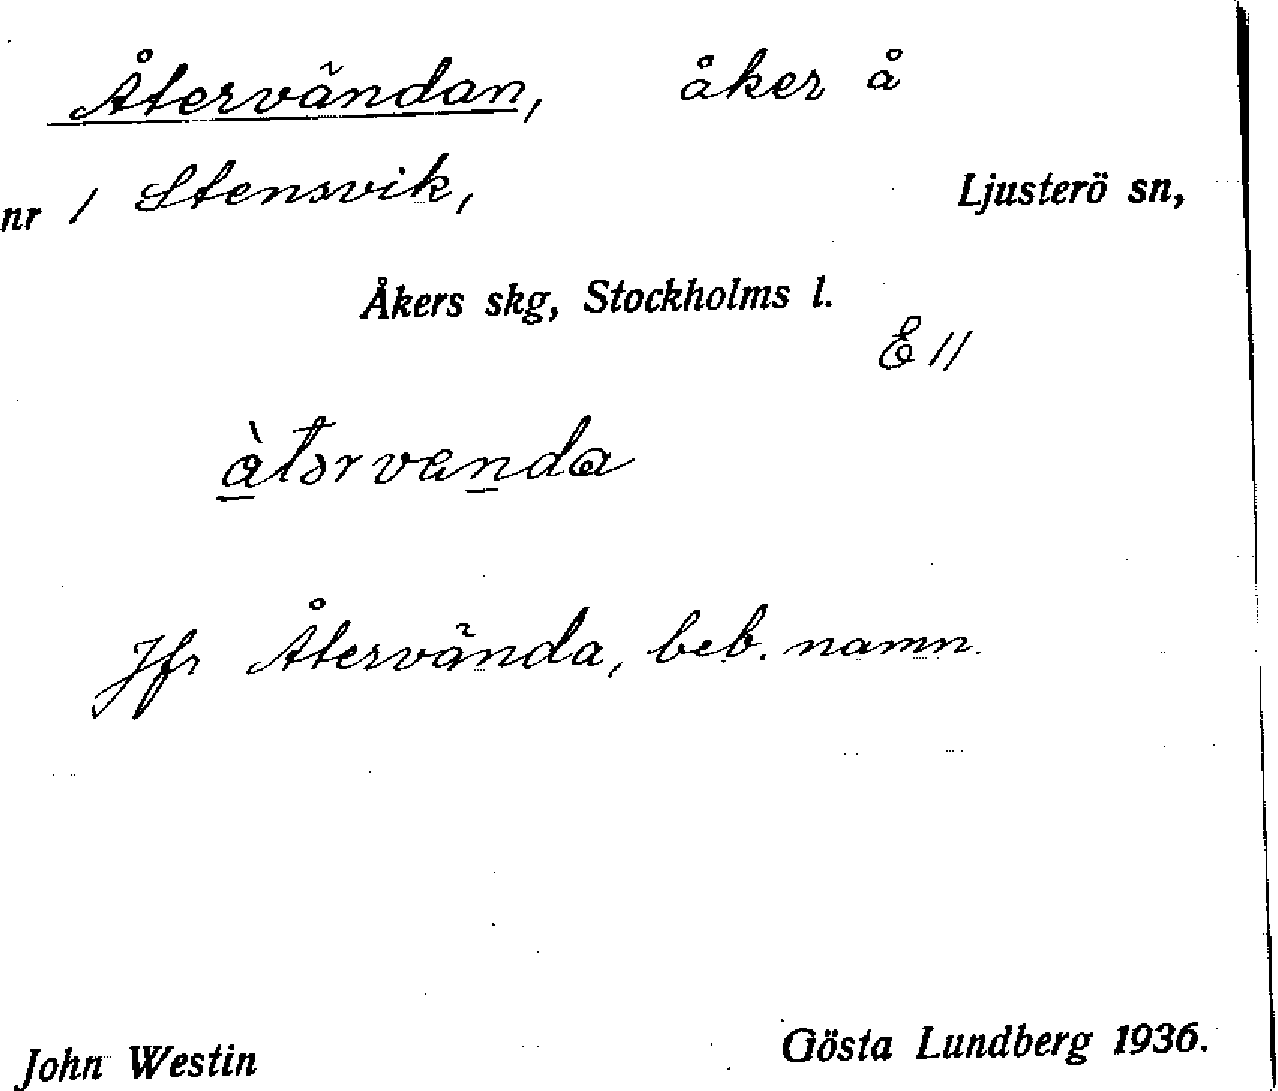 Återvändan, åker å
nr 1 Stensvik, Ljusterö sn,
Åkers skg, Stockholms l.
E 11
Jfr Återvända, beb. namn.
John Westin Gösta Lundberg 1936.